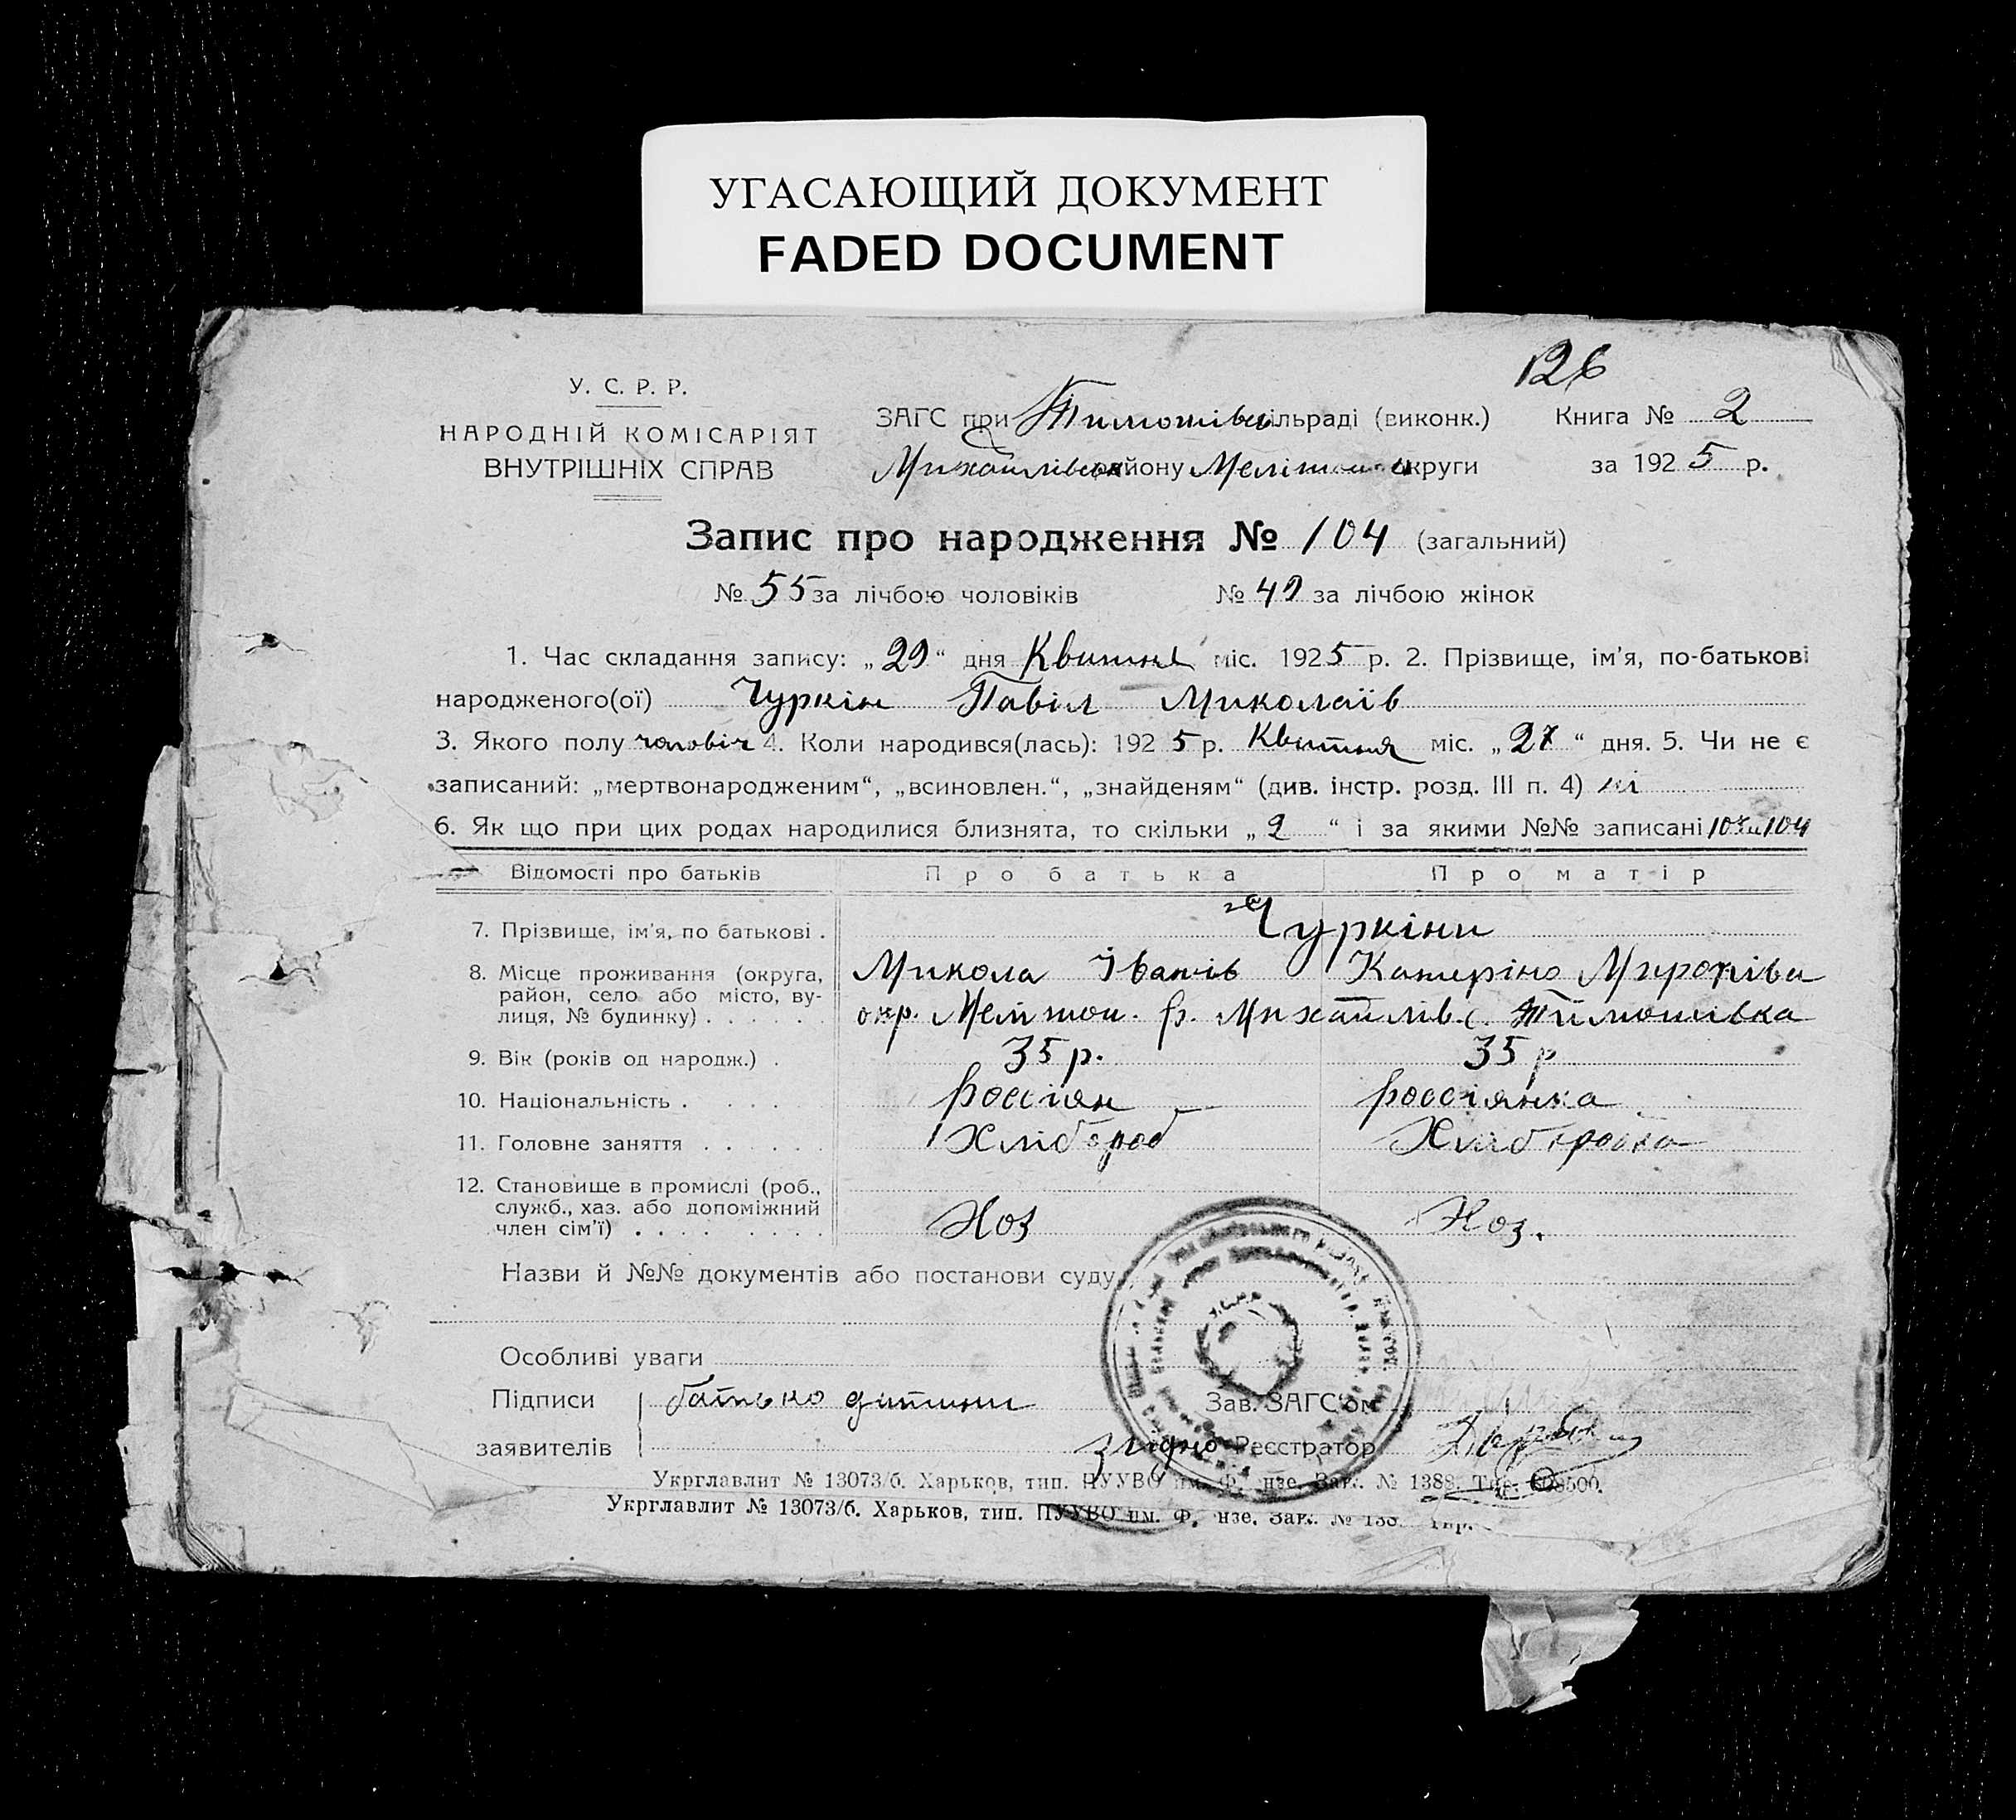 УГАСАЮЩИЙ ДОКУМЕНТ
FADED DOCUMENT
126
У. С. Р. Р.
НАРОДНІЙ КОМІСАРІЯТ
ВНУТРІШНІХ СПРАВ
ЗАГС при Тимошівськ сільраді (виконк.)
Михайлівськ району Меліт округи
Книга № 2
за 1925 р.
Запис про народження № 104 (загальний)
№ 55 за лічбою чоловіків № 49 за лічбою жінок
1. Час складання запису: „29“ дня Квитня міс. 1925 р. 2. Прізвище, ім’я, по-батькові
народженого(ої) Чуркін Павіл Миколаїв
3. Якого полу чоловіч 4. Коли народився(лась): 1925 р. Квитня міс. „27“ дня. 5. Чи не є
записаний: „мертвонародженим“, „всиновлен.“, „знайденям“ (див. інстр. розд. III п. 4) ні
6. Як що при цих родах народилися близнята, то скільки „2“ і за якими №№ записані 104
Відомості про батьків Про батька Про матір
7. Прізвище, ім’я, по батькові . Чуркіни
8. Місце проживання (округа, район, село або місто, вулиця, № будинку) . . . . . Микола Іванів Катеріна Миропіва
окр. Меліт р. Михайлів. с. Тимошівка
9. Вік (років од народж.) . 35 р. 35 р
10. Національність . . . . россіян россіянка
11. Головне заняття . . . . . . Хлібороб Хліборобка
12. Становище в промислі (роб.,
служб., хаз. або допоміжний
член сім’ї) . . . . . . . . Хоз Хоз.
Назви й №№ документів або постанови суду
Особливі уваги
Підписи батько дитини Зав. ЗАГС’ом
заявителів згідно Реєстратор
Укрглавлит № 13073/б. Харьков, тип. ПУУВО им. Ф. нзе. Зак. № 1388. Тир.
Укрглавлит № 13073/б. Харьков, тип. ПУУВО им. Ф. нзе. Зак. № 138 Тир.